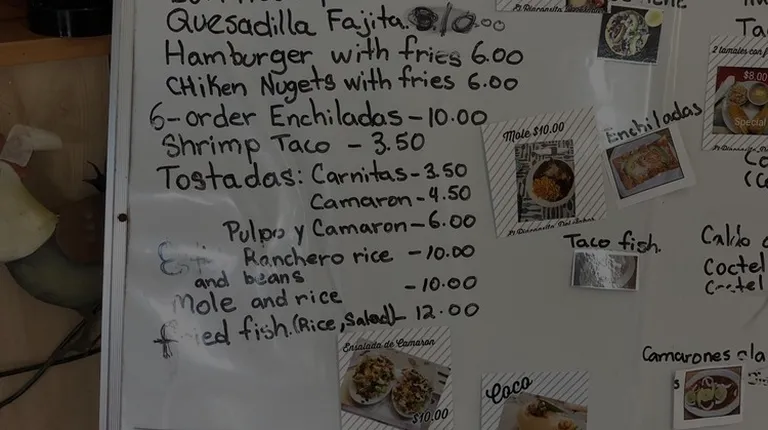 Quesadilla Fajita. 10.00
Hamburger with fries 6.00
CHiken Nugets with fries 6.00
6-order Enchiladas - 10.00
Shrimp Taco - 3.50
Tostadas: Carnitas - 3.50
Camaron - 4.50
Pulpo y Camaron - 6.00
Ranchero rice - 10.00
and beans
Mole and rice - 10.00
fried fish. (Rice, Salad) - 12.00
Mole $10.00
Enchiladas
Taco fish.
Ensalada de Camaron
$10.00
Coco
2 tamales con
$8.00
Special
Caldo
Coctel
Camarones a la